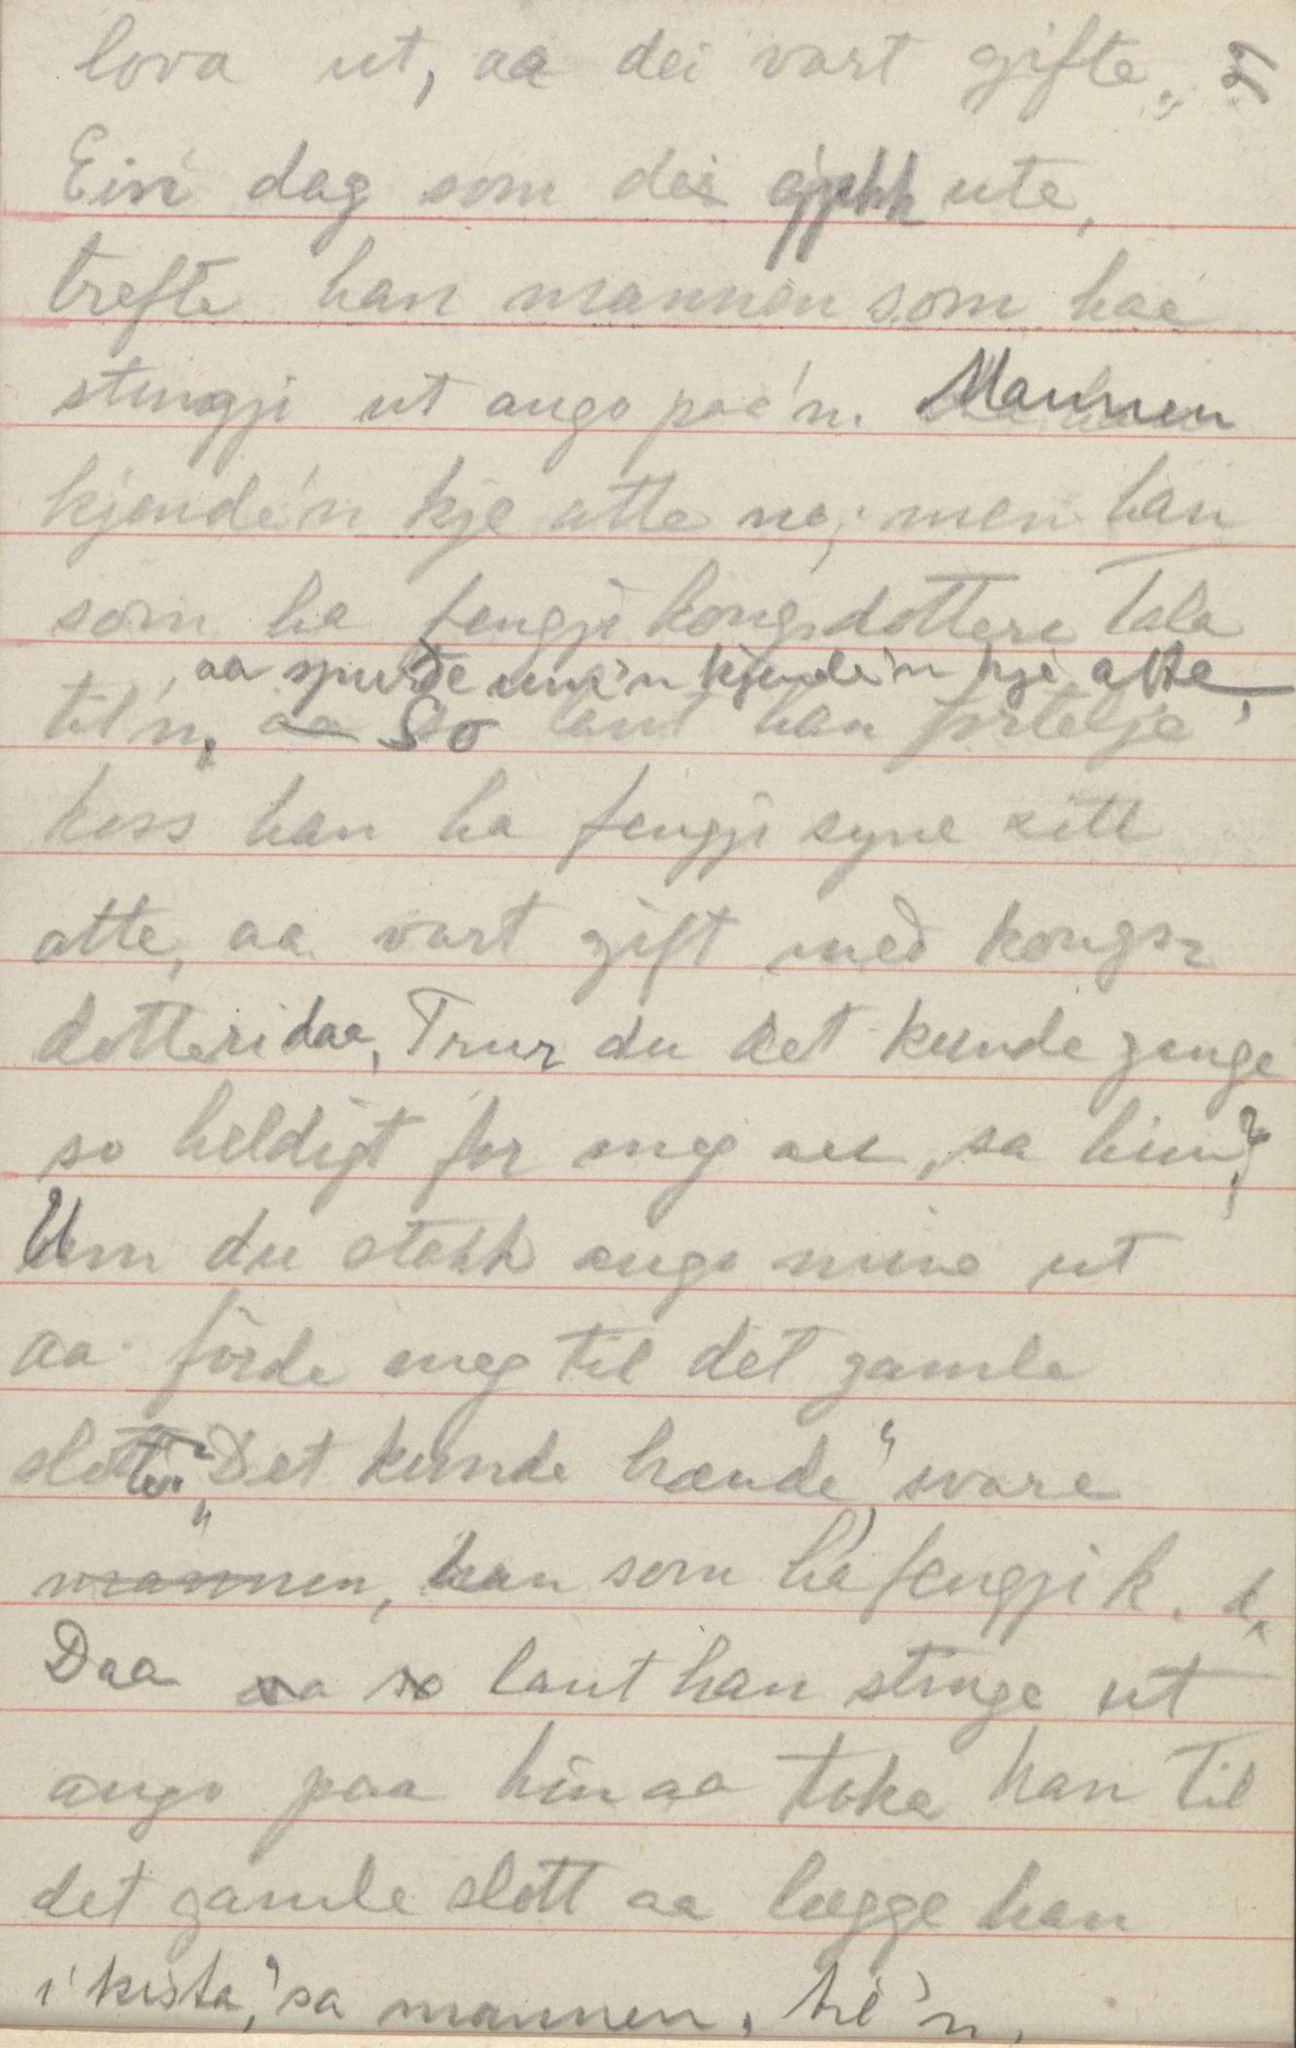 lova ut, aa dei vart gifte.
Ein dag som dei gjekk ute,
trefte han mannen som hae
stungji ut augo paa'n. Mannen
kjende'n kje atte no, men han
som ha fengji kongsdottere tala
aa spurde um'n kjende'n kje atte,
til'n, aa So laut han fortelje
koss han ha fengji syne sitt
atte, aa vart gift med kongs-
dotteri daa, Trur du det kunde gange
so heldigt for meg au, sa hin?
Um du stakk augo mine ut
aa förde meg til det gamle
slottet" "Det kunde hænde" svare
mannen, han som ha fengji k. d.
Daa aa so laut han stinge ut
augo paa hin aa toka han til
det gamle slott aa lægge han
i kista," sa mannen, til'n,